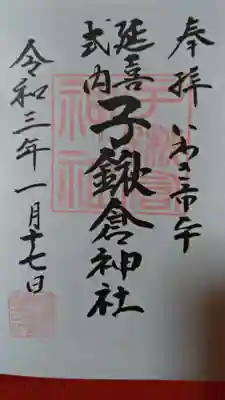 奉拝 いわき市平
延喜式内
子鍬倉神社
令和三年一月十七日